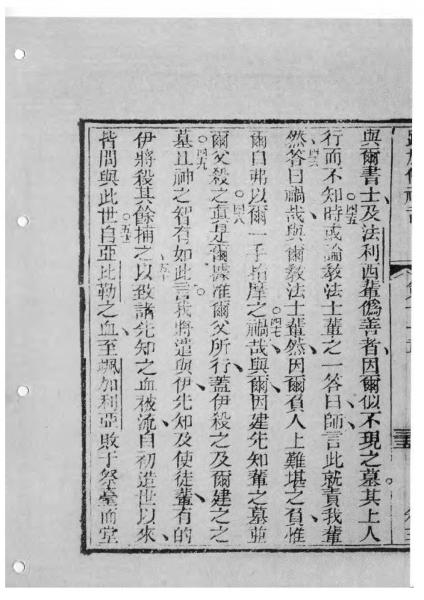 與爾書士及法利西輩偽善者因爾似不現之墓其上人
行而不知時或論教法士輩之一答曰師言此就責我輩
然答曰禍哉與爾教法士輩然因爾負人上難堪之負惟
爾自弗以爾一手指摩之禍哉與爾因建先知輩之墓並
爾父殺之真是爾據准爾父所行蓋伊殺之及爾建之之
墓且神之智有如此言我將遣與伊先知及使徒輩有的
伊將殺其餘捕之以致諸先知之血被流自初造世以來
皆問與此世自亞比勒之血至颯加利亞敗于祭臺而堂